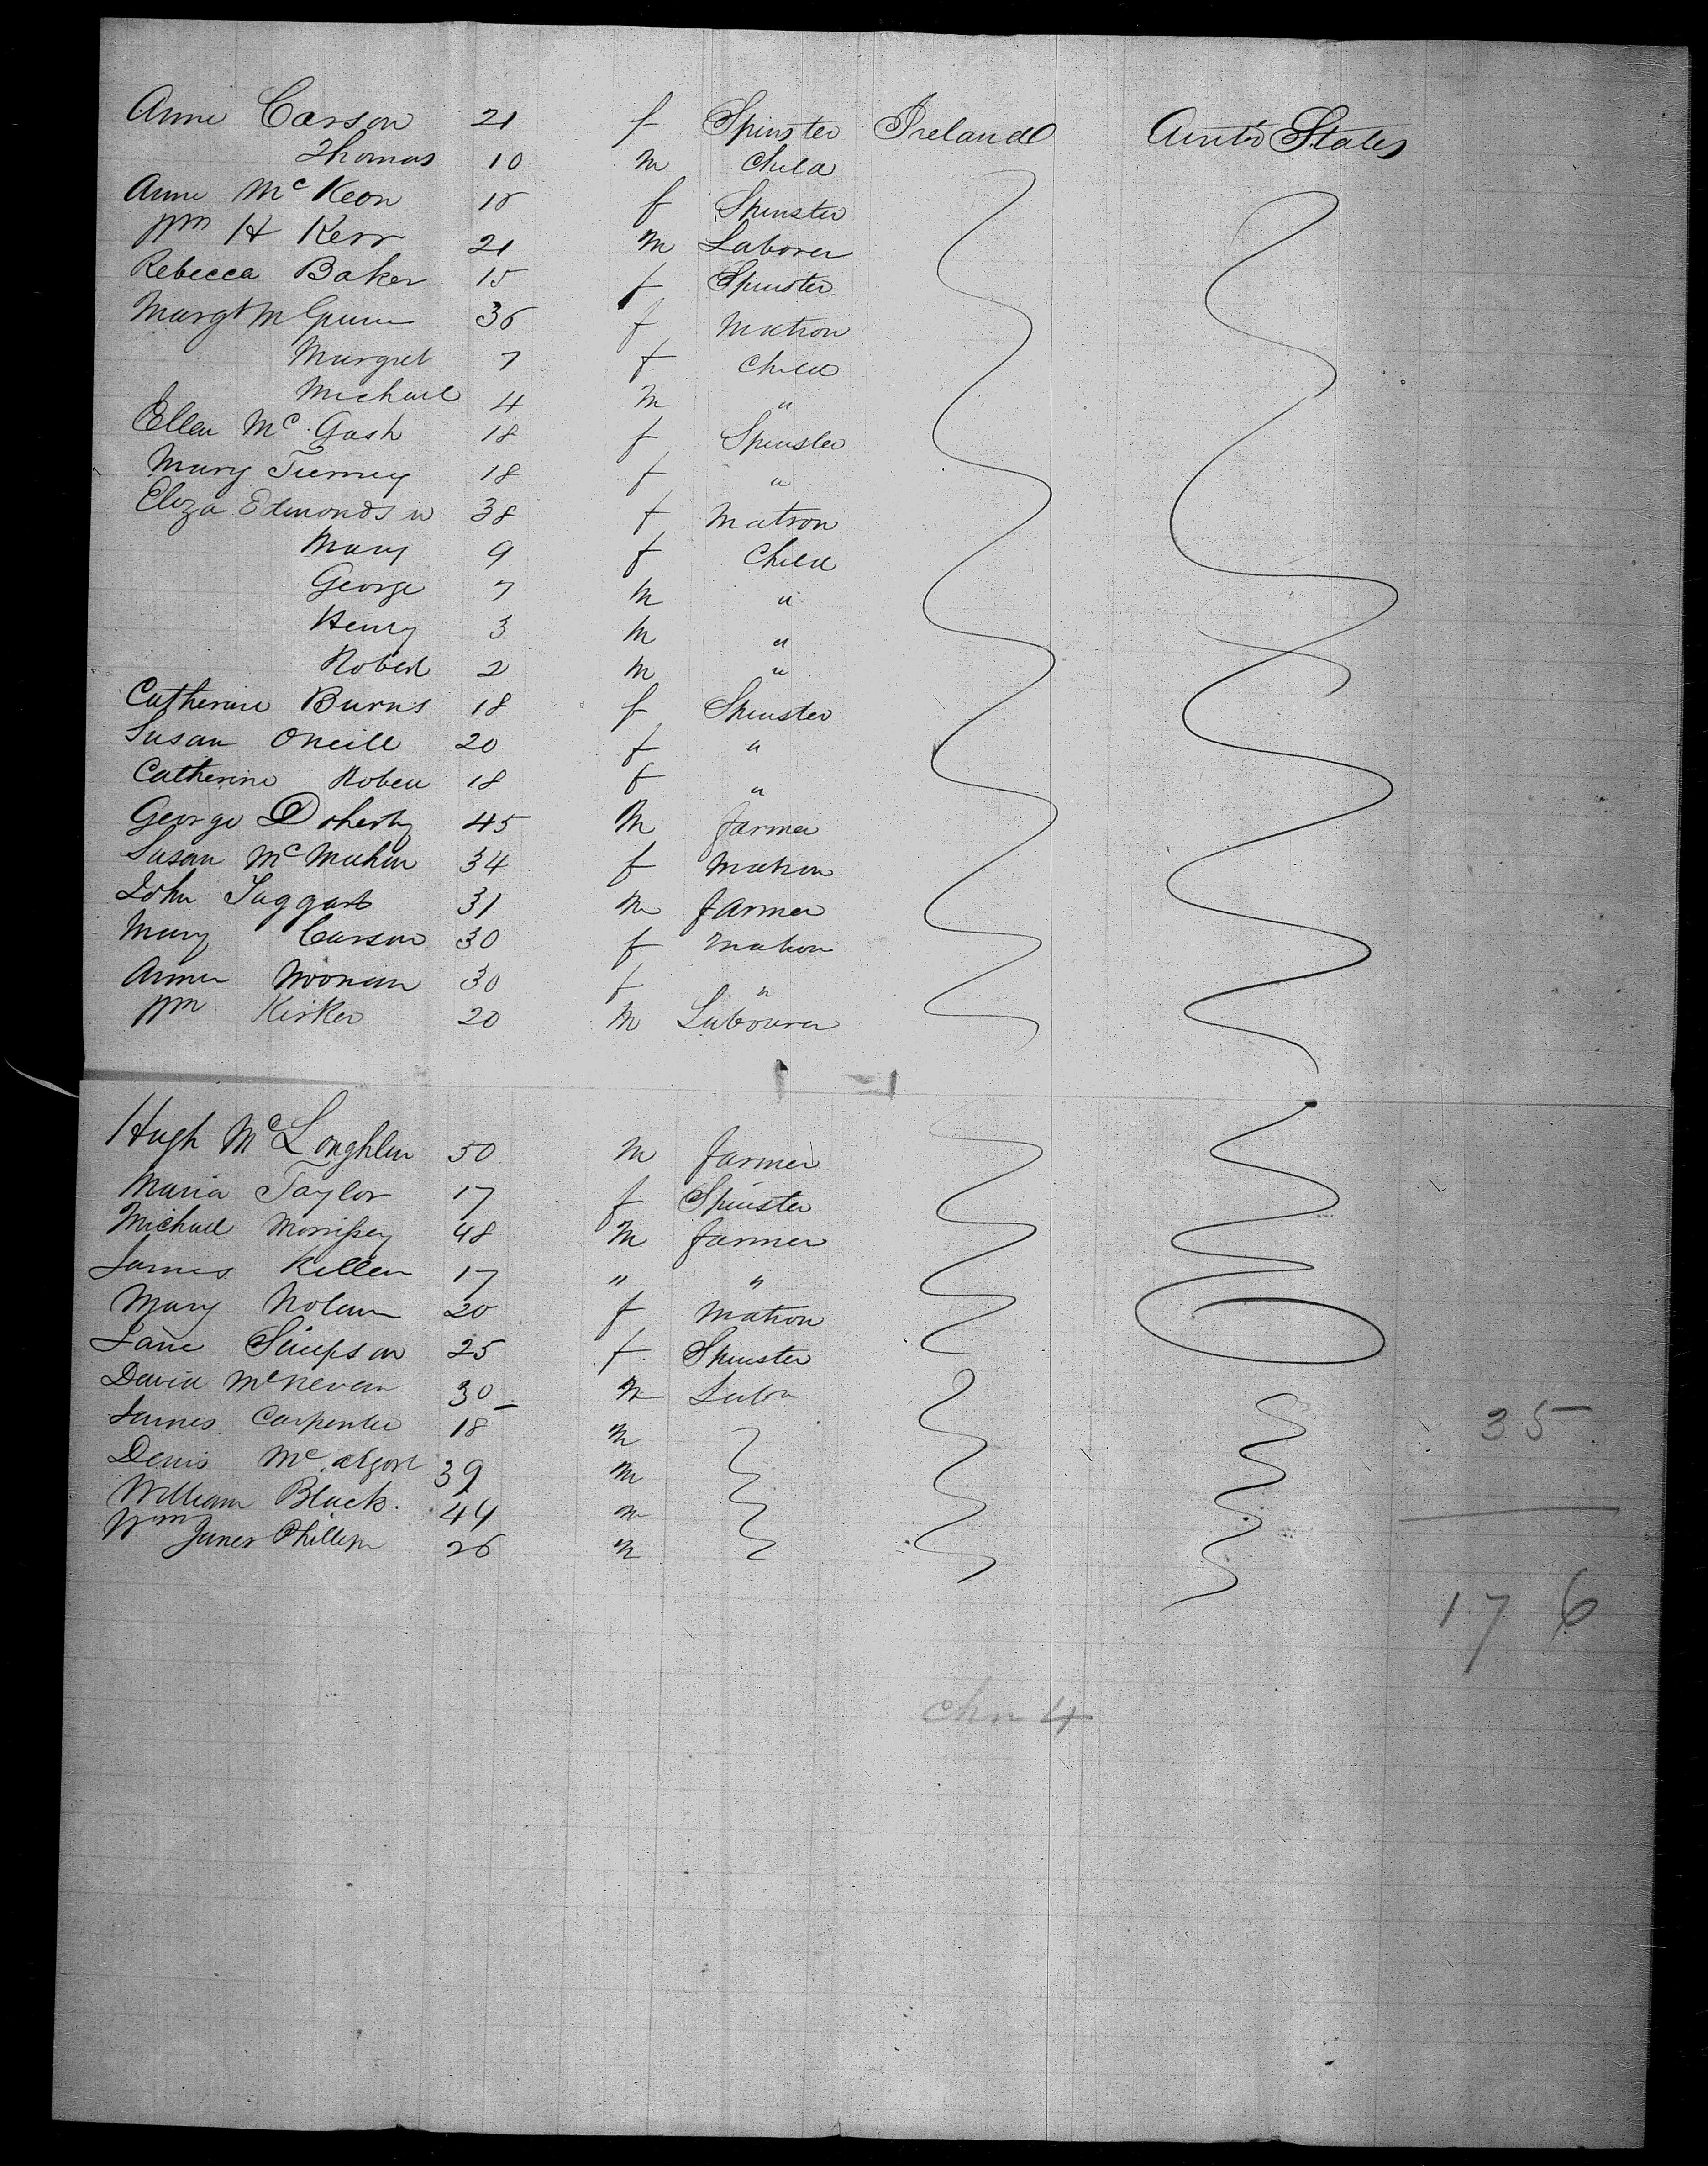 Anne Carson 21 f Spinster Ireland Unitd States
Thomas 10 m Child
Anne Mc Keon 18 f Spinster
Wm H Kerr 21 m Laborer
Rebecca Baker 15 f Spinster
Margt 36 f Matron
Margret 7 f Child
Michael 4 m "
Ellen Mc Gash 18 f Spinster
Mary Tierney 18 f "
Eliza Edmondson 38 f Matron
Mary 9 f Child
George 7 m "
Henry 3 m "
Robert 2 m "
Catherine Burns 18 f Spinster
Susan Oneill 20 f "
Catherine 18 f "
George Doherty 45 m farmer
Susan Mc Mahon 34 f Matron
John Taggart 31 m farmer
Mary Carson 30 f matron
Noonan 30 f "
Wm Kirker 20 m Labourer
Hugh Mc Loughlin 50 m farmer
Maria Taylor 17 f Spinster
Michael Morrissey 48 m farmer
James Killen 17 " "
Mary Nolan 20 f Matron
Jane Simpson 25 f Spinster
David McNevan 30 m Labr
James Carpenter 18 m
Denis 39 m
William Black. 44 m
Wm James Phillips 26 m
35
176
chn 4